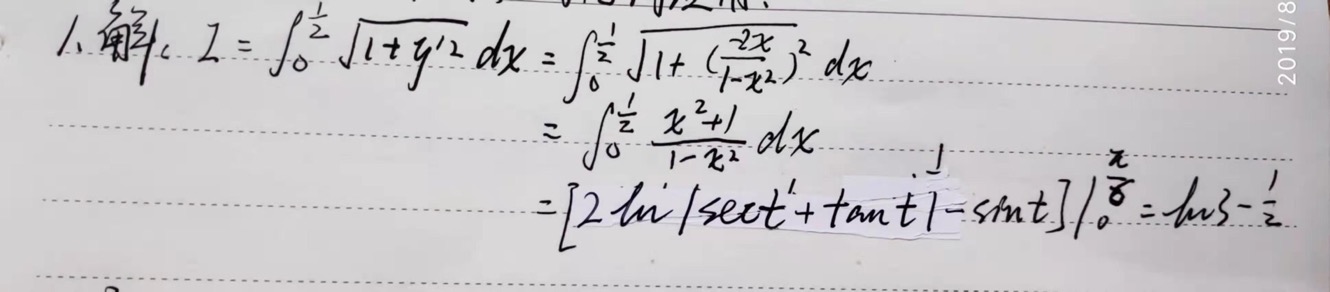 1. 解: I = ∫₀^{1/2} √(1+y'²) dx = ∫₀^{1/2} √(1+(-2x/(1-x²))²) dx
= ∫₀^{1/2} (x²+1)/(1-x²) dx
= [2 ln |sect + tant| - sint] |₀^{π/6} = ln3 - 1/2
2019/8